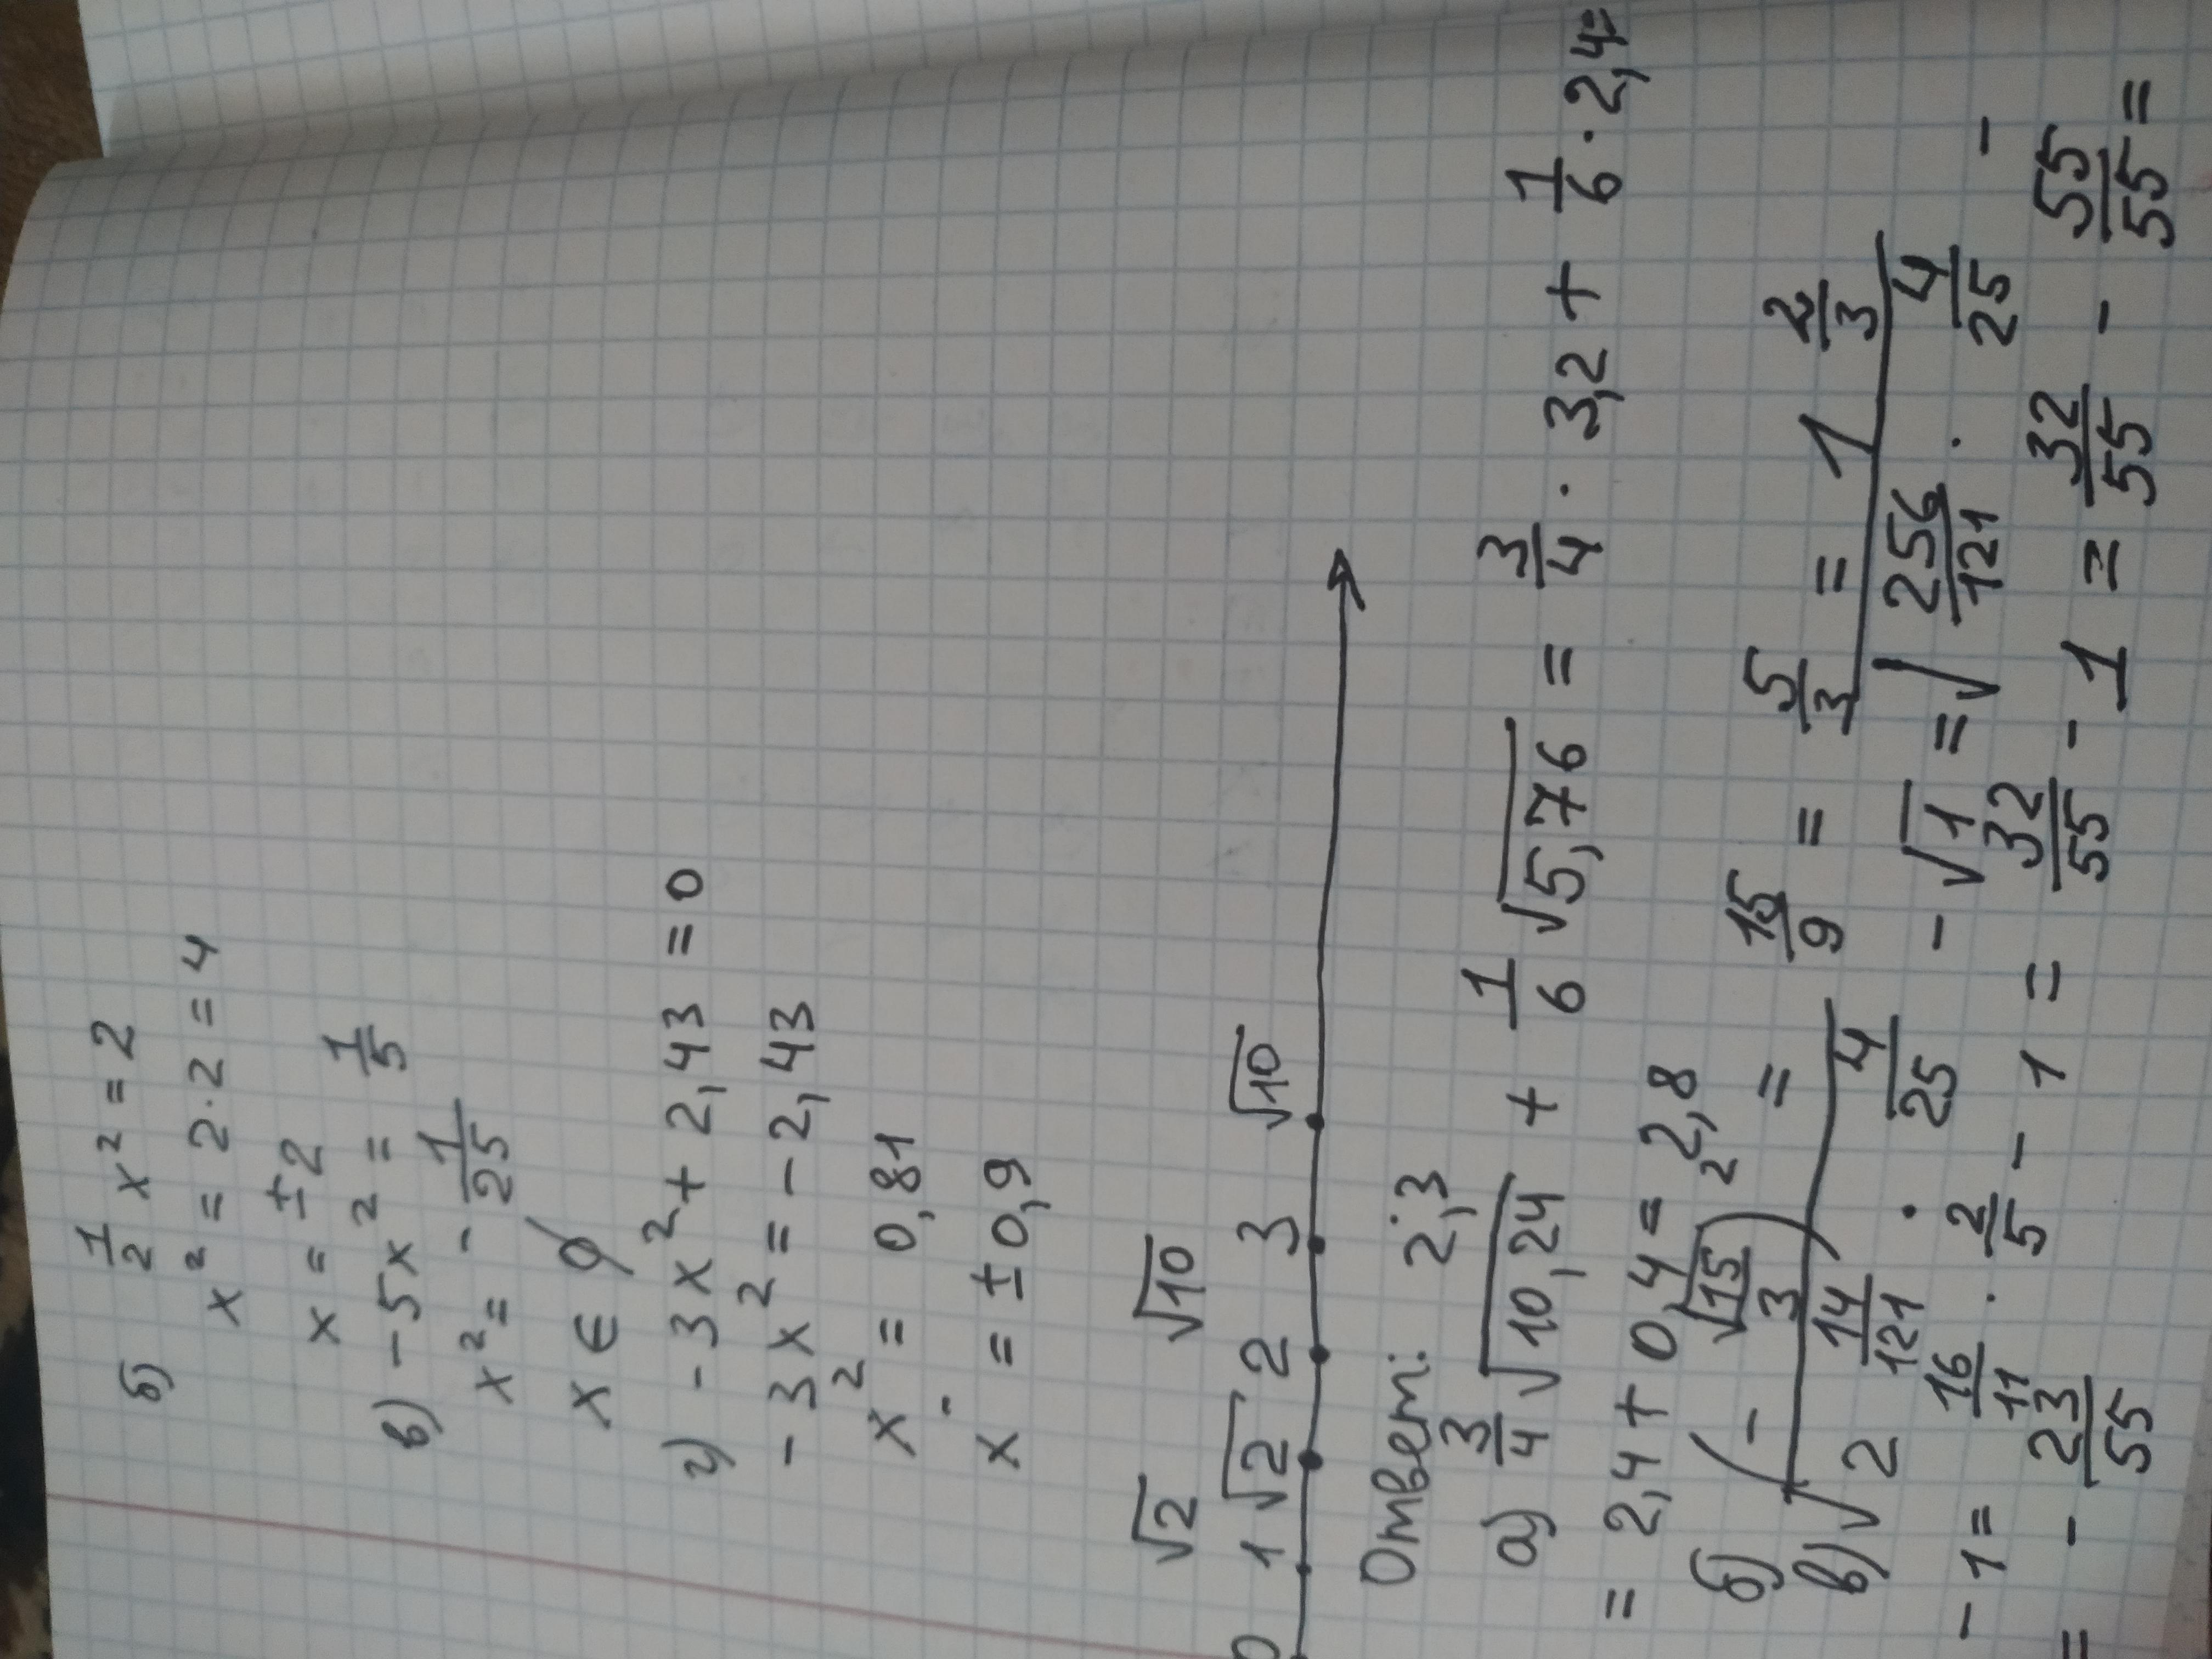 б) 1/2 x² = 2
x² = 2·2 = 4
x = ±2
в) -5x² = 1/5
x² = -1/25
x ∈ ∅
г) -3x² + 2,43 = 0
-3x² = -2,43
x² = 0,81
x = ±0,9
√2 √10
0 1 √2 2 3 √10
Ответ: 2;3
а) 3/4 √10,24 + 1/6 √5,76 = 3/4 · 3,2 + 1/6 · 2,4=
= 2,4 + 0,4 = 2,8
б) (-√15/3)² = 15/9 = 5/3 = 1 2/3
в) √(2 14/121 · 4/25) - √1 = √(256/121 · 4/25) -
-1= 16/11 · 2/5 - 1 = 32/55 - 1 = 32/55 - 55/55 =
= -23/55